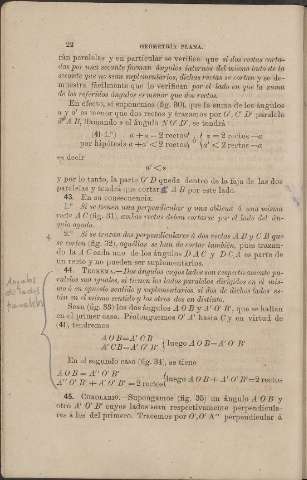 22 GEOMETRÍA PLANA.
rán paralelas y en particular se verifica que si dos rectas corta-
das por una secante forman ángulos internos del mismo lado de la
secante que no sean suplementarios, dichas rectas se cortan y se de-
muestra fácilmente que lo verifican por el lado en que la suma
de los referidos ángulos es menor que dos rectos.
En efecto, si suponemos (fig. 30), que la suma de los ángulos
a y a' es menor que dos rectos y trazamos por O', C' D' paralela
á A B, llamando s al ángulo N' O' D', se tendrá
(41-1.º) a + s = 2 rectos s = 2 rectos - a
por hipótesis a + a' < 2 rectos ó a' < 2 rectos - a
es decir
a' < s
y por lo tanto, la parte O' D queda dentro de la faja de las dos
paralelas y tendrá que cortar á A B por este lado.
43. En su consecuencia:
1.º Si se tienen una perpendicular y una oblicua á una misma
recta A C (fig. 31), ambas rectas deben cortarse por el lado del án-
gulo agudo.
2.º Si se trazan dos perpendiculares á dos rectas A B y C B que
se corten (fig. 32), aquéllas se han de cortar también, pues trazan-
do la A C cada uno de los ángulos D A C y D C A es parte de
un recto y no pueden ser suplementarios.
44. TEOREMA.—Dos ángulos cuyos lados son respectivamente pa-
ralelos son iguales, si tienen los lados paralelos dirigidos en el mis-
mo ó en opuesto sentido y suplementarios si dos de dichos lados es-
tán en el mismo sentido y los otros dos en distinto.
Sean (fig. 33) los dos ángulos A O B y A' O' B', que se hallan
en el primer caso. Prolonguemos O' A' hasta C y en virtud de
(41), tendremos
A O B = A' C B
A' C B = A' O' B' luego A O B = A' O' B'
En el segundo caso (fig. 34), se tiene
A O B = A'' O' B'
A'' O' B' + A' O' B' = 2 rectos luego A O B + A' O' B' = 2 rectos
45. COROLARIO.—Supongamos (fig. 35) un ángulo A O B y
otro A' O' B' cuyos lados sean respectivamente perpendicula-
res á los del primero. Tracemos por O', O' A'' perpendicular á
4
Angulos
de lados
paralelos